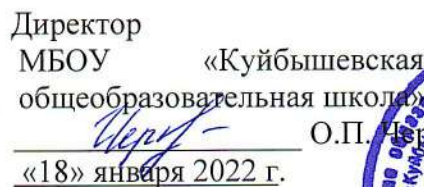 Директор
МБОУ «Куйбышевская
общеобразовательная школа»
О.П.
«18» января 2022 г.